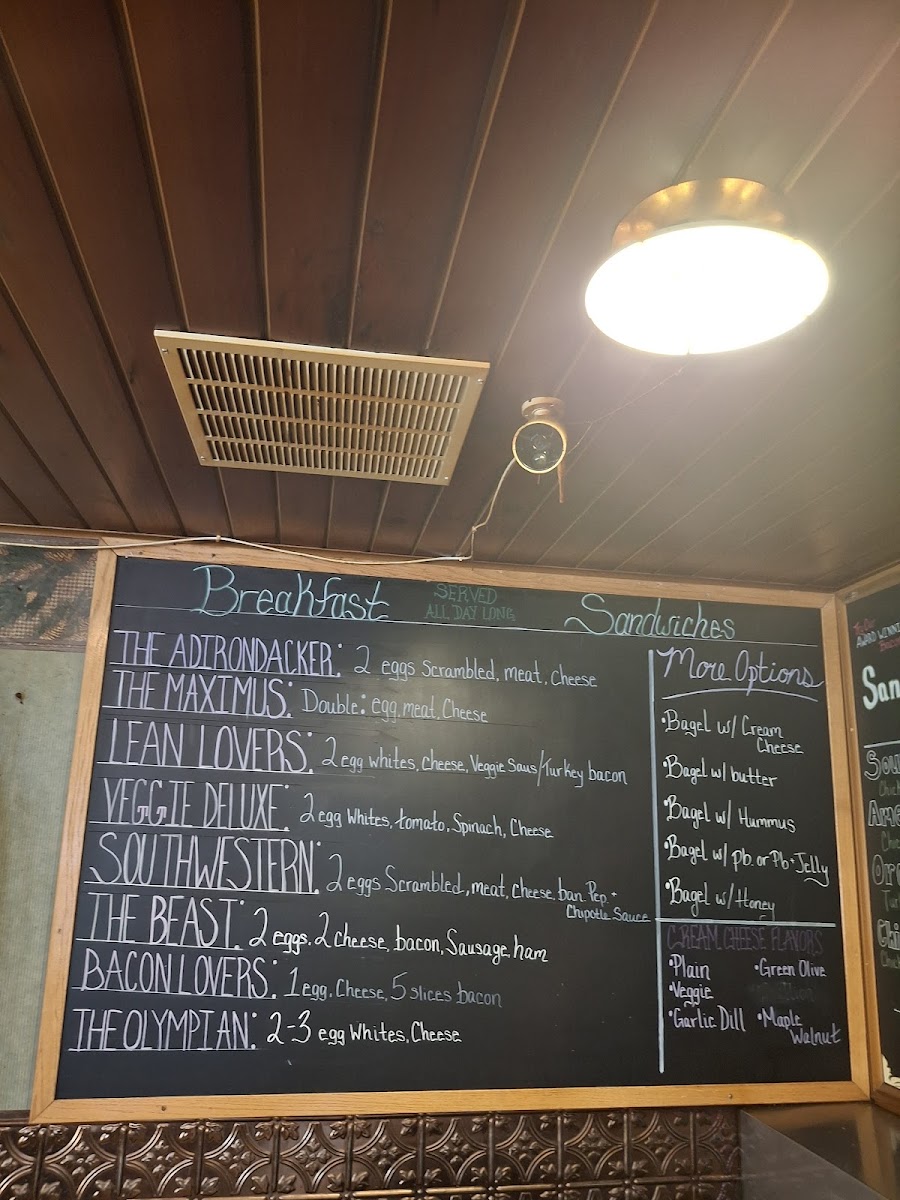 Breakfast SERVED ALL DAY LONG Sandwiches
THE ADIRONDACKER: 2 eggs Scrambled, meat, Cheese
THE MAXIMUS: Double: egg, meat, Cheese
LEAN LOVERS: 2 egg whites, cheese, Veggie Saus/Turkey bacon
VEGGIE DELUXE: 2 egg Whites, tomato, Spinach, Cheese
SOUTHWESTERN: 2 eggs Scrambled, meat, cheese, ban. Pep. +
Chipotle Sauce
THE BEAST: 2 eggs, 2 cheese, bacon, Sausage, ham
BACON LOVERS: 1 egg, Cheese, 5 slices bacon
THE OLYMPIAN: 2-3 egg Whites, Cheese
More Options
•Bagel w/ Cream
Cheese
•Bagel w/ butter
•Bagel w/ Hummus
•Bagel w/ pb. or Pb+Jelly
•Bagel w/ Honey
CREAM CHEESE FLAVORS
•Plain •Green Olive
•Veggie
•Garlic Dill •Maple
Walnut
AWARD WINNI
San
Sou
Chic
Ame